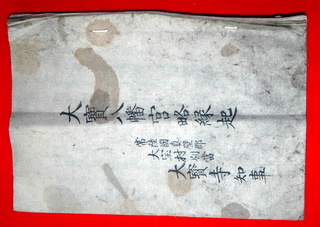 大寶八幡宮略縁起
常陸國真壁郡
大宝村別當
大寳寺知事